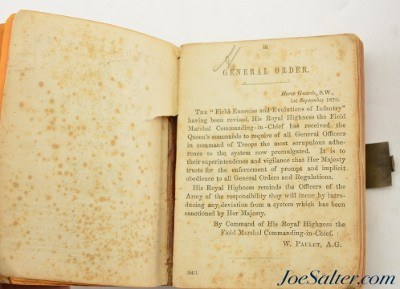 iii
GENERAL ORDER.
Horse Guards, S.W.,
1st September 1870.
THE "Field Exercise and Evolutions of Infantry"
having been revised, His Royal Highness the Field
Marshal Commanding-in-Chief has received the
Queen's commands to require of all General Officers
in command of Troops the most scrupulous adhe-
rence to the system now promulgated. It is to
their superintendence and vigilance that Her Majesty
trusts for the enforcement of prompt and implicit
obedience to all General Orders and Regulations.
His Royal Highness reminds the Officers of the
Army of the responsibility they will incur by intro-
ducing any deviation from a system which has been
sanctioned by Her Majesty.
By Command of His Royal Highness the
Field Marshal Commanding-in-Chief.
W. PAULET, A.G.
JoeSalter.com